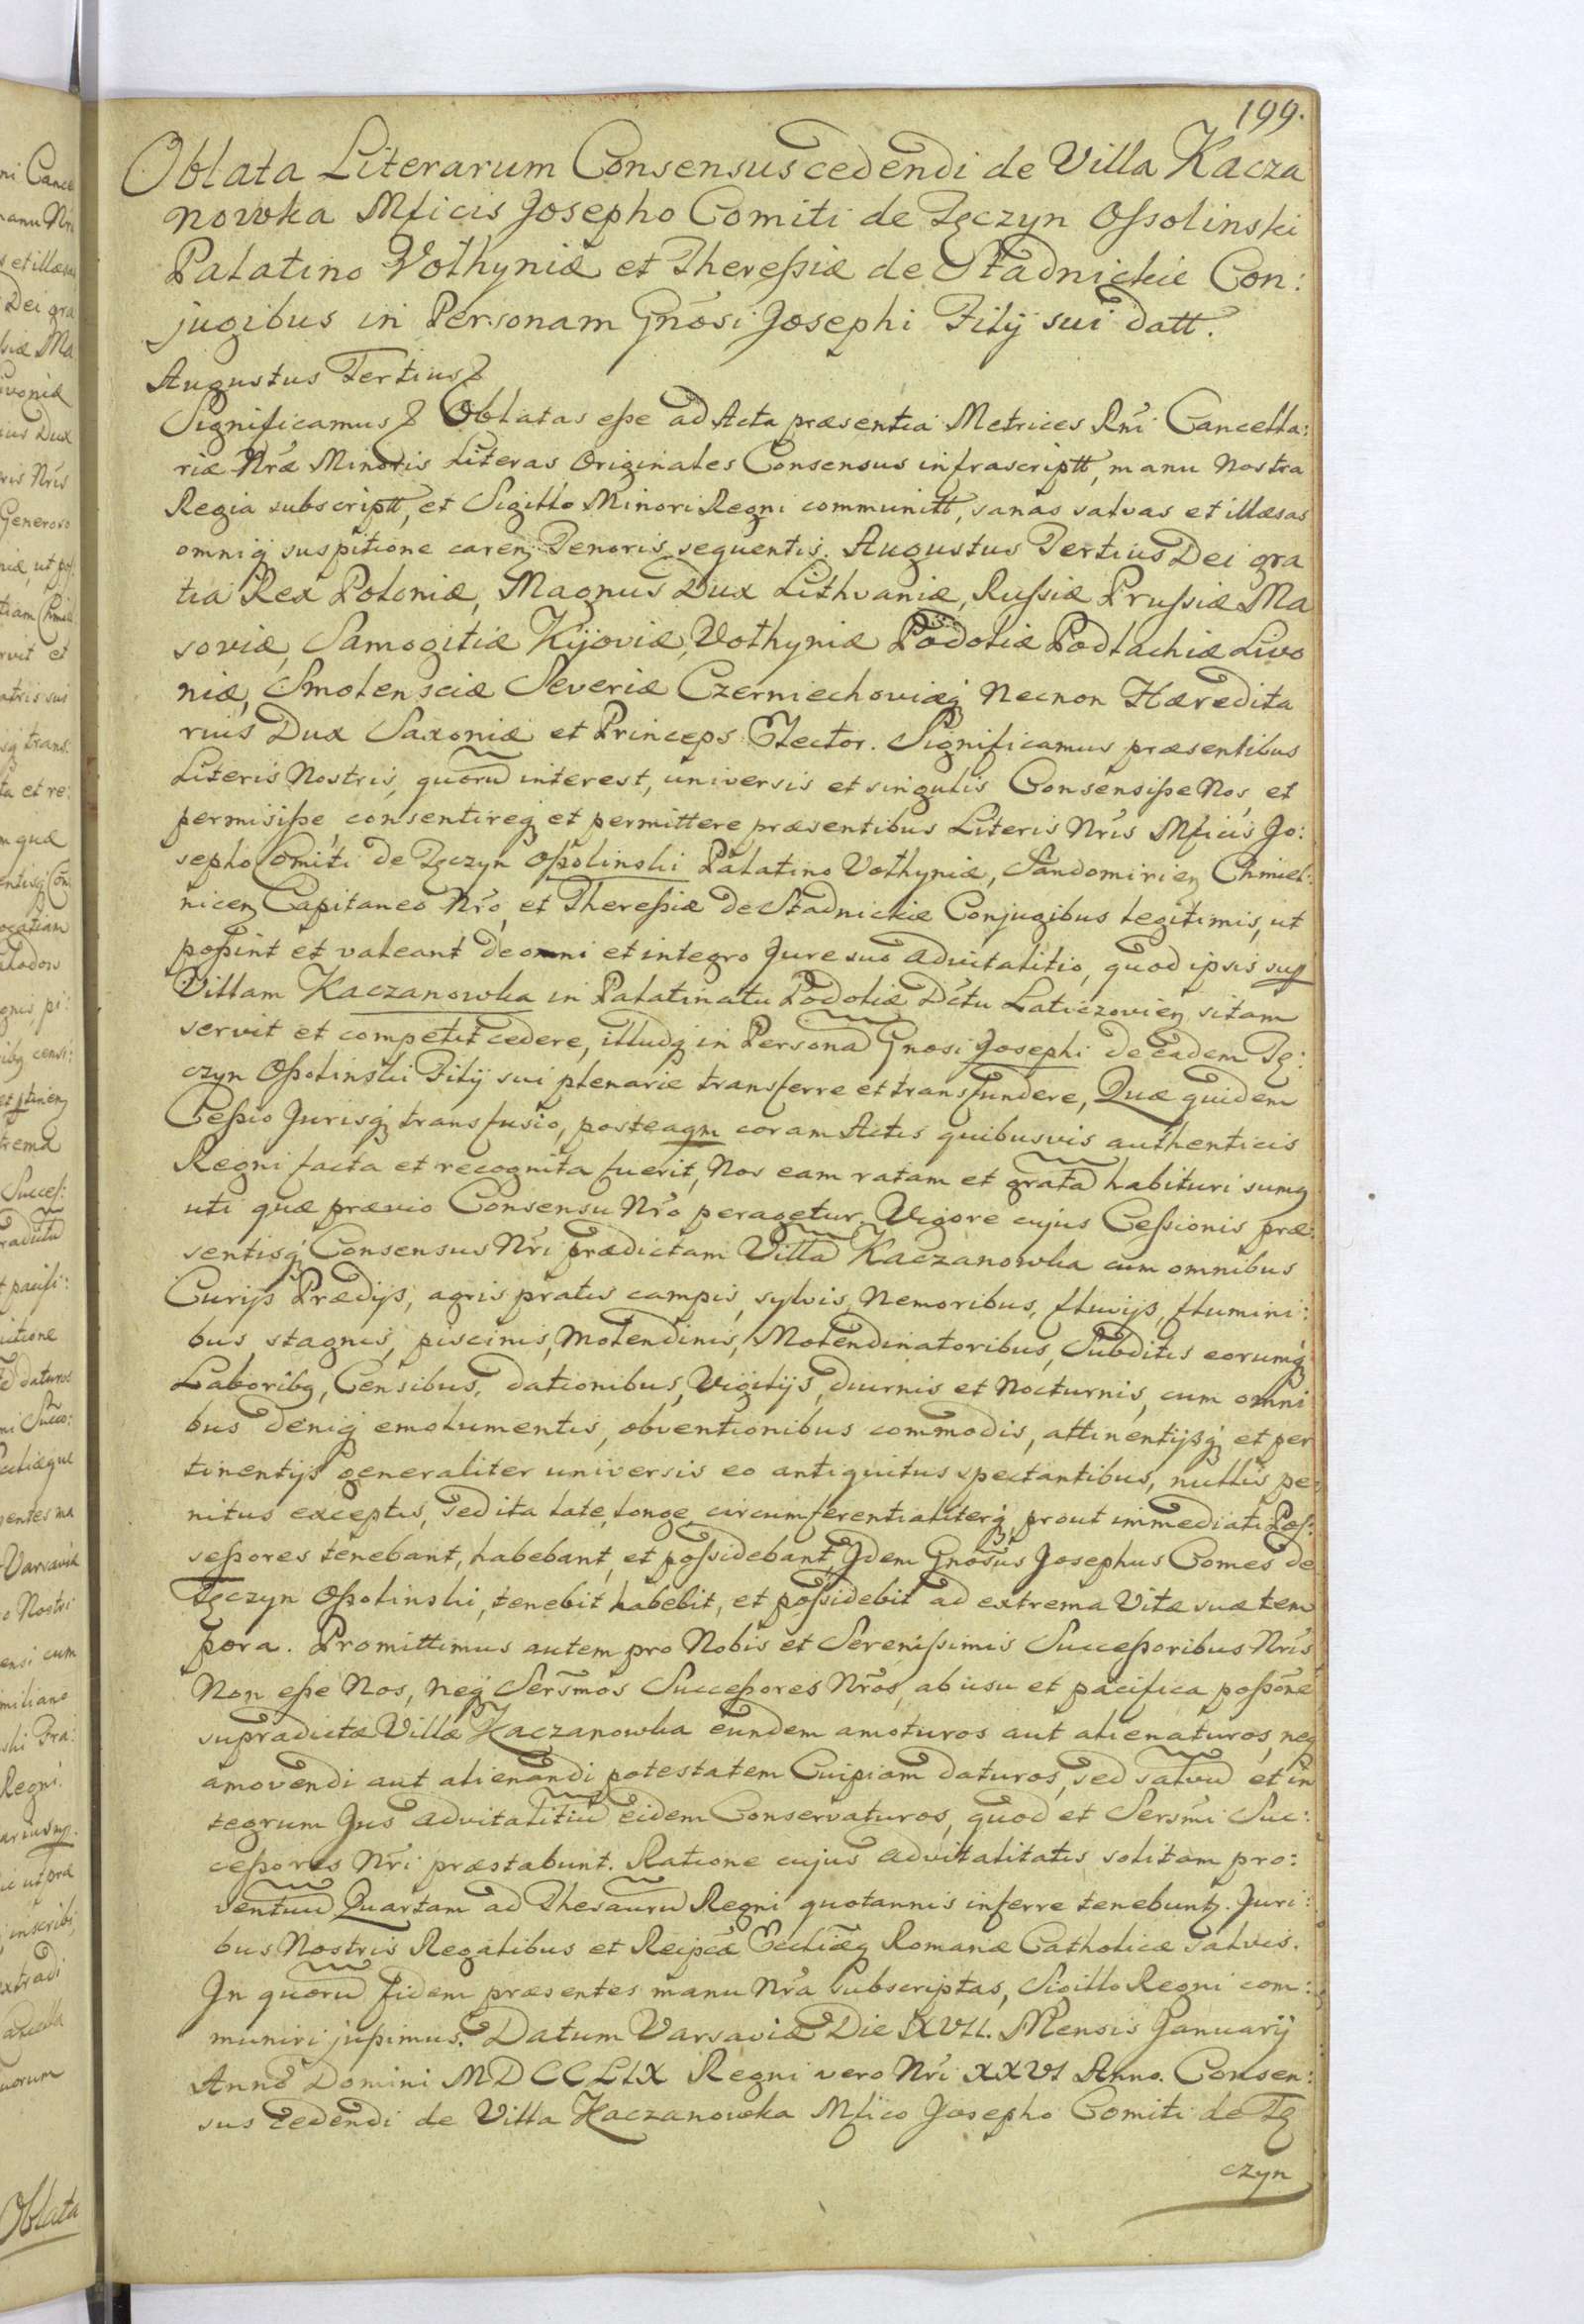 199.
Oblata Literarum Consensus cedendi de Villa Kacza
nowka Mficis Josepho Comiti de Tęczyn Ossolinski
Palatino Volhyniæ et Theressiæ de Stadnickie Con:
jugibus in Personam Gnosi Josephi Filij sui datt.
Augustus Tertius
Significamus Oblatas esse ad Acta præsentia Metrices Rni Cancella:
riæ Nræ Minoris Literas Originales Consensus infrascriptt, manu Nostra
Regia subscriptt, et Sigillo Minori Regni communitt, sanas salvas et illæsas
omniq suspitione careñ Tenoris sequentis. Augustus Tertius Dei gra
tia Rex Poloniæ, Magnus Dux Lithvaniæ, Russiæ Prussiæ Ma
soviæ, Samogitiæ Kijoviæ, Volhyniæ Podoliæ Podlachiæ Livo
niæ, Smolensciæ Severiæ Czerniechoviæq Necnon Hæredita
rius Dux Saxoniæ et Princeps Elector. Significamus præsentibus
Literis Nostris, quorũ interest, universis et singulis Consensisse Nos, et
permisisse, consentireq et permittere præsentibus Literis Nris Mficis Jo:
sepho Comiti de Tęczyn Ossolinski Palatino Volhyniæ, Sandomirieñ Chmiel:
niceñ Capitaneo Nro, et Theressiæ de Stadnickie Conjugibus legitimis, ut
possint et valeant de omni et integro Jure suo advitalitio, quod ipsis sup
Villam Kaczanowka in Palatinatu Podoliæ Dctu Laticzovieñ sitam
servit et competit cedere, illudq in Personã Gnosi Josephi de eadem Tę:
czyn Ossolinski Filij sui plenarie transferre et transfundere, Quæ quidem
Cessio Jurisq transfusio, posteaqm coram Actis quibusvis authenticis
Regni facta et recognita fuerit, Nos eam ratam et gratã habituri sumq
uti quæ prævio Consensu Nro peragetur. Vigore cujus Cessionis præ:
sentisq Consensus Nri prædictam Villã Kaczanowka cum omnibus
Curijs Prædijs, agris pratis campis, sylvis, Nemoribus, fluvijs, flumini:
bus, stagnis, piscinis, Molendinis, Molendinatoribus, Subditis eorumq
Laboribq, Censibus, dationibus, Vigilijs, diurnis et Nocturnis, cum omni
bus deniq emolumentis, obventionibus commodis, attinentijsq et per
tinentijs generaliter universis eo antiquitus spectantibus, nullis pe
nitus exceptis, sed ita late, longe, circumferentialiterq prout immediati Pos:
sessores tenebant, habebant, et possidebant, Idem Gnosus Josephus Comes de
Tęczyn Ossolinski, tenebit, habebit, et possidebit ad extrema Vitæ suæ tem
pora. Promittimus autem pro Nobis et Serenissimis Successoribus Nris
Non esse Nos, neq Sersmos Successores Nros, ab usu et pacifica possone
supradictæ Villæ Kaczanowka eundem amoturos aut alienaturos, neq
amovendi aut alienandi potestatem Cuipiam daturos, sed salvũ et in
tegrum Jus advitalitiũ eidem Conservaturos, quod et Sersmi Suc:
cessores Nri præstabunt. Ratione cujus advitalitatis solitam pro:
ventuũ Quartam ad Thesaurũ Regni quotannis inferre tenebuntz. Juri:
bus Nostris Regalibus et Reipcæ Ecclæq Romanæ Catholicæ salvis.
In quorũ fidem præsentes manu Nra subscriptas, Sigillo Regni com:
muniri jussimus. Datum Varsaviæ Die XVII. Mensis Januarij
Anno Domini MDCCLIX Regni vero Nri XXVI Anno. Consen:
sus cedendi de Villa Kaczanowka Mfico Josepho Comiti de Tę
czyn